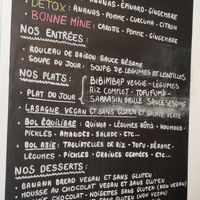 ANANAS - ÉPINARD - GINGEMBRE
DETOX : ANANAS - POMME - CURCUMA - CITRON
BONNE MINE : CAROTTE - POMME - GINGEMBRE
NOS ENTRÉES :
• ROULEAU DE SAISON SAUCE SÉSAME
• SOUPE DU JOUR : SOUPE DE LÉGUMES ET LENTILLES
NOS PLATS :
• PLAT DU JOUR
BIBIMBAP VEGGIE - LÉGUMES
RIZ COMPLET - TOFU FUMÉ -
SARRASIN GRILLÉ - SAUCE SÉSAME
• LASAGNE VEGAN ET SANS GLUTEN ET SALADE VERTE
• BOL ÉQUILIBRE : QUINOA - LÉGUMES RÔTIS - HOUMOUS -
PICKLES - AMANDES - SALADE - ETC...
• BOL ASIE : TAGLIATELLES DE RIZ - TOFU - SÉSAME -
LÉGUMES - PICKLES - GRAINES GERMÉES - ETC...
NOS DESSERTS :
• BANANA BREAD VEGAN ET SANS GLUTEN
• MOUSSE AU CHOCOLAT VEGAN ET SANS GLUTEN
CHOCOLAT - NOISETTES SANS GLUTEN (NON VEGAN)